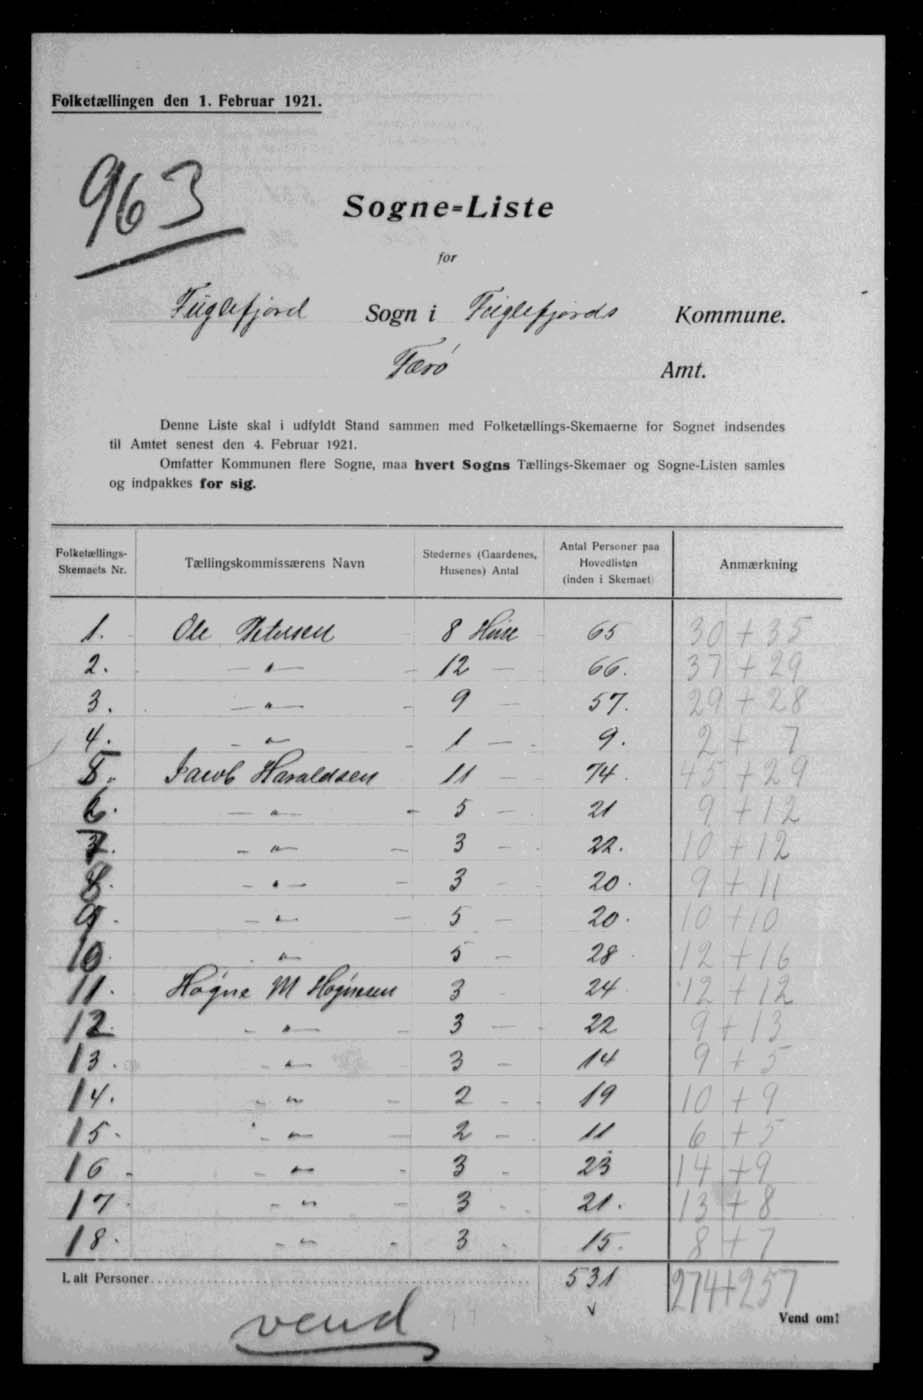 Folketællingen den 1. Februar 1921.
963
Sogne-Liste
for
Fuglefjord Sogn i Fuglefjords Kommune.
Færø Amt.
Denne Liste skal i udfyldt Stand sammen med Folketællings-Skemaerne for Sognet indsendes
til Amtet senest den 4. Februar 1921.
Omfatter Kommunen flere Sogne, maa hvert Sogns Tællings-Skemaer og Sogne-Listen samles
og indpakkes for sig.
Folketællings-Skemaets Nr. Tællingskommissærens Navn Stedernes (Gaardenes, Husenes) Antal Antal Personer paa Hovedlisten (inden i Skemaet) Anmærkning
1. Ole Petersen 8 Huse 65 30 + 35
2. — " — 12 — 66. 37 + 29
3. — " — 9 — 57. 29 + 28
4. — " — 1 — 9. 2 + 7
5. Jacob Haraldsen 11 — 74. 45 + 29
6. — " — 5 — 21 9 + 12
7. — " — 3 — 22. 10 + 12
8. — " — 3 — 20. 9 + 11
9. — " — 5 — 20. 10 + 10
10. " — 5 — 28. 12 + 16
11. Høgne M Høgnesen 3 24 12 + 12
12. — " — 3 — 22 9 + 13
13. — " — 3 — 14 9 + 5
14. — " — 2 — 19 10 + 9
15. — " — 2 — 11 6 + 5
16. — " — 3 - 23 14 + 9
17. — " — 3 - 21. 13 + 8
18. — " — 3 - 15. 8 + 7
I alt Personer 531 274+257
Vend om!
vend